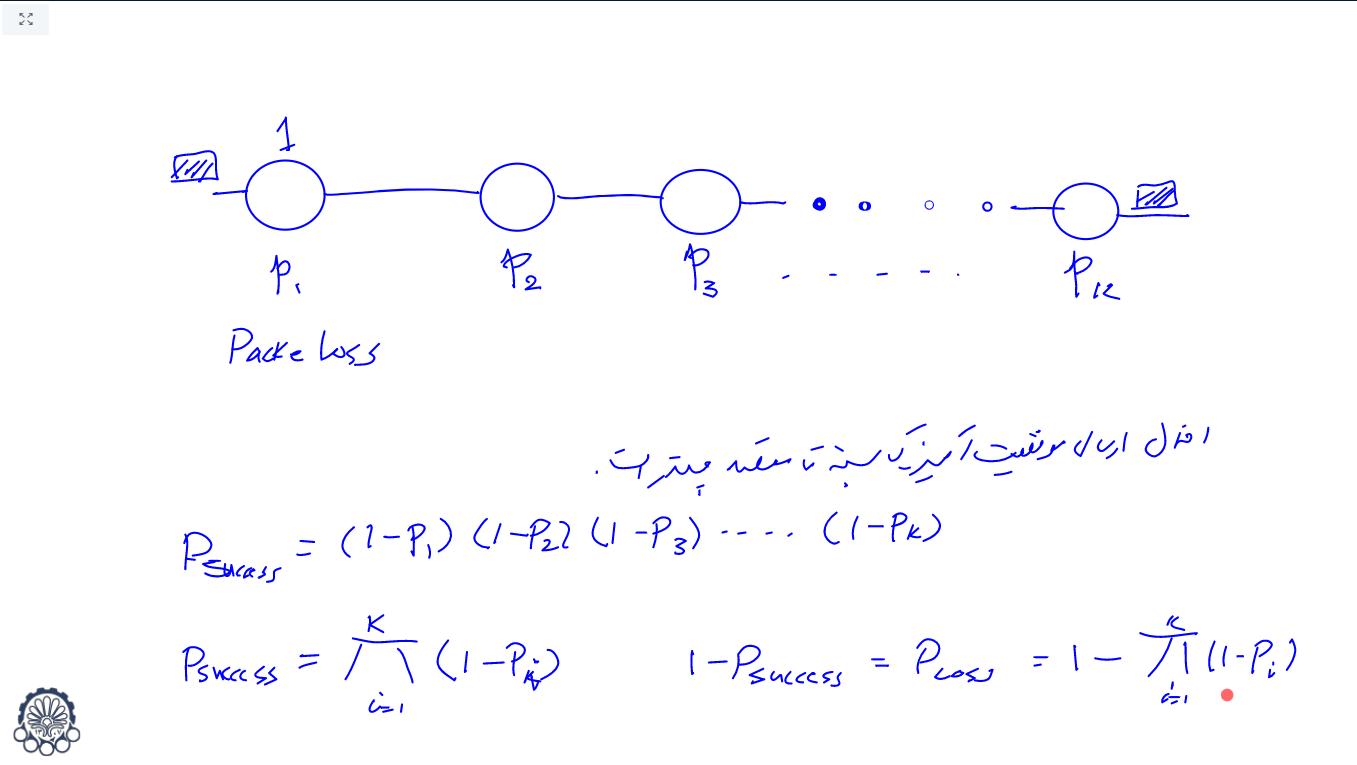 1
P₁ P₂ P₃ - - - - . P_K
Packe Loss
احتمال ارسال موفقیت آمیز یک بسته تا مقصد چیقدر است.
P_success = (1-P₁) (1-P₂) (1-P₃) ---- (1-P_K)
P_success = ∏_{i=1}^{K} (1-P_i) 1-P_success = P_Loss = 1 - ∏_{i=1}^{K} (1-P_i)